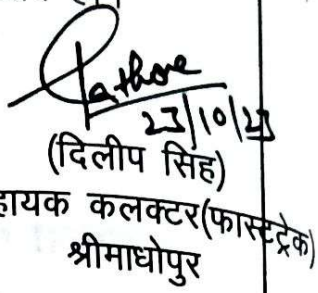 Rathore
23/10/23
(दिलीप सिंह)
हायक कलक्टर(फास्टट्रेक)
श्रीमाधोपुर